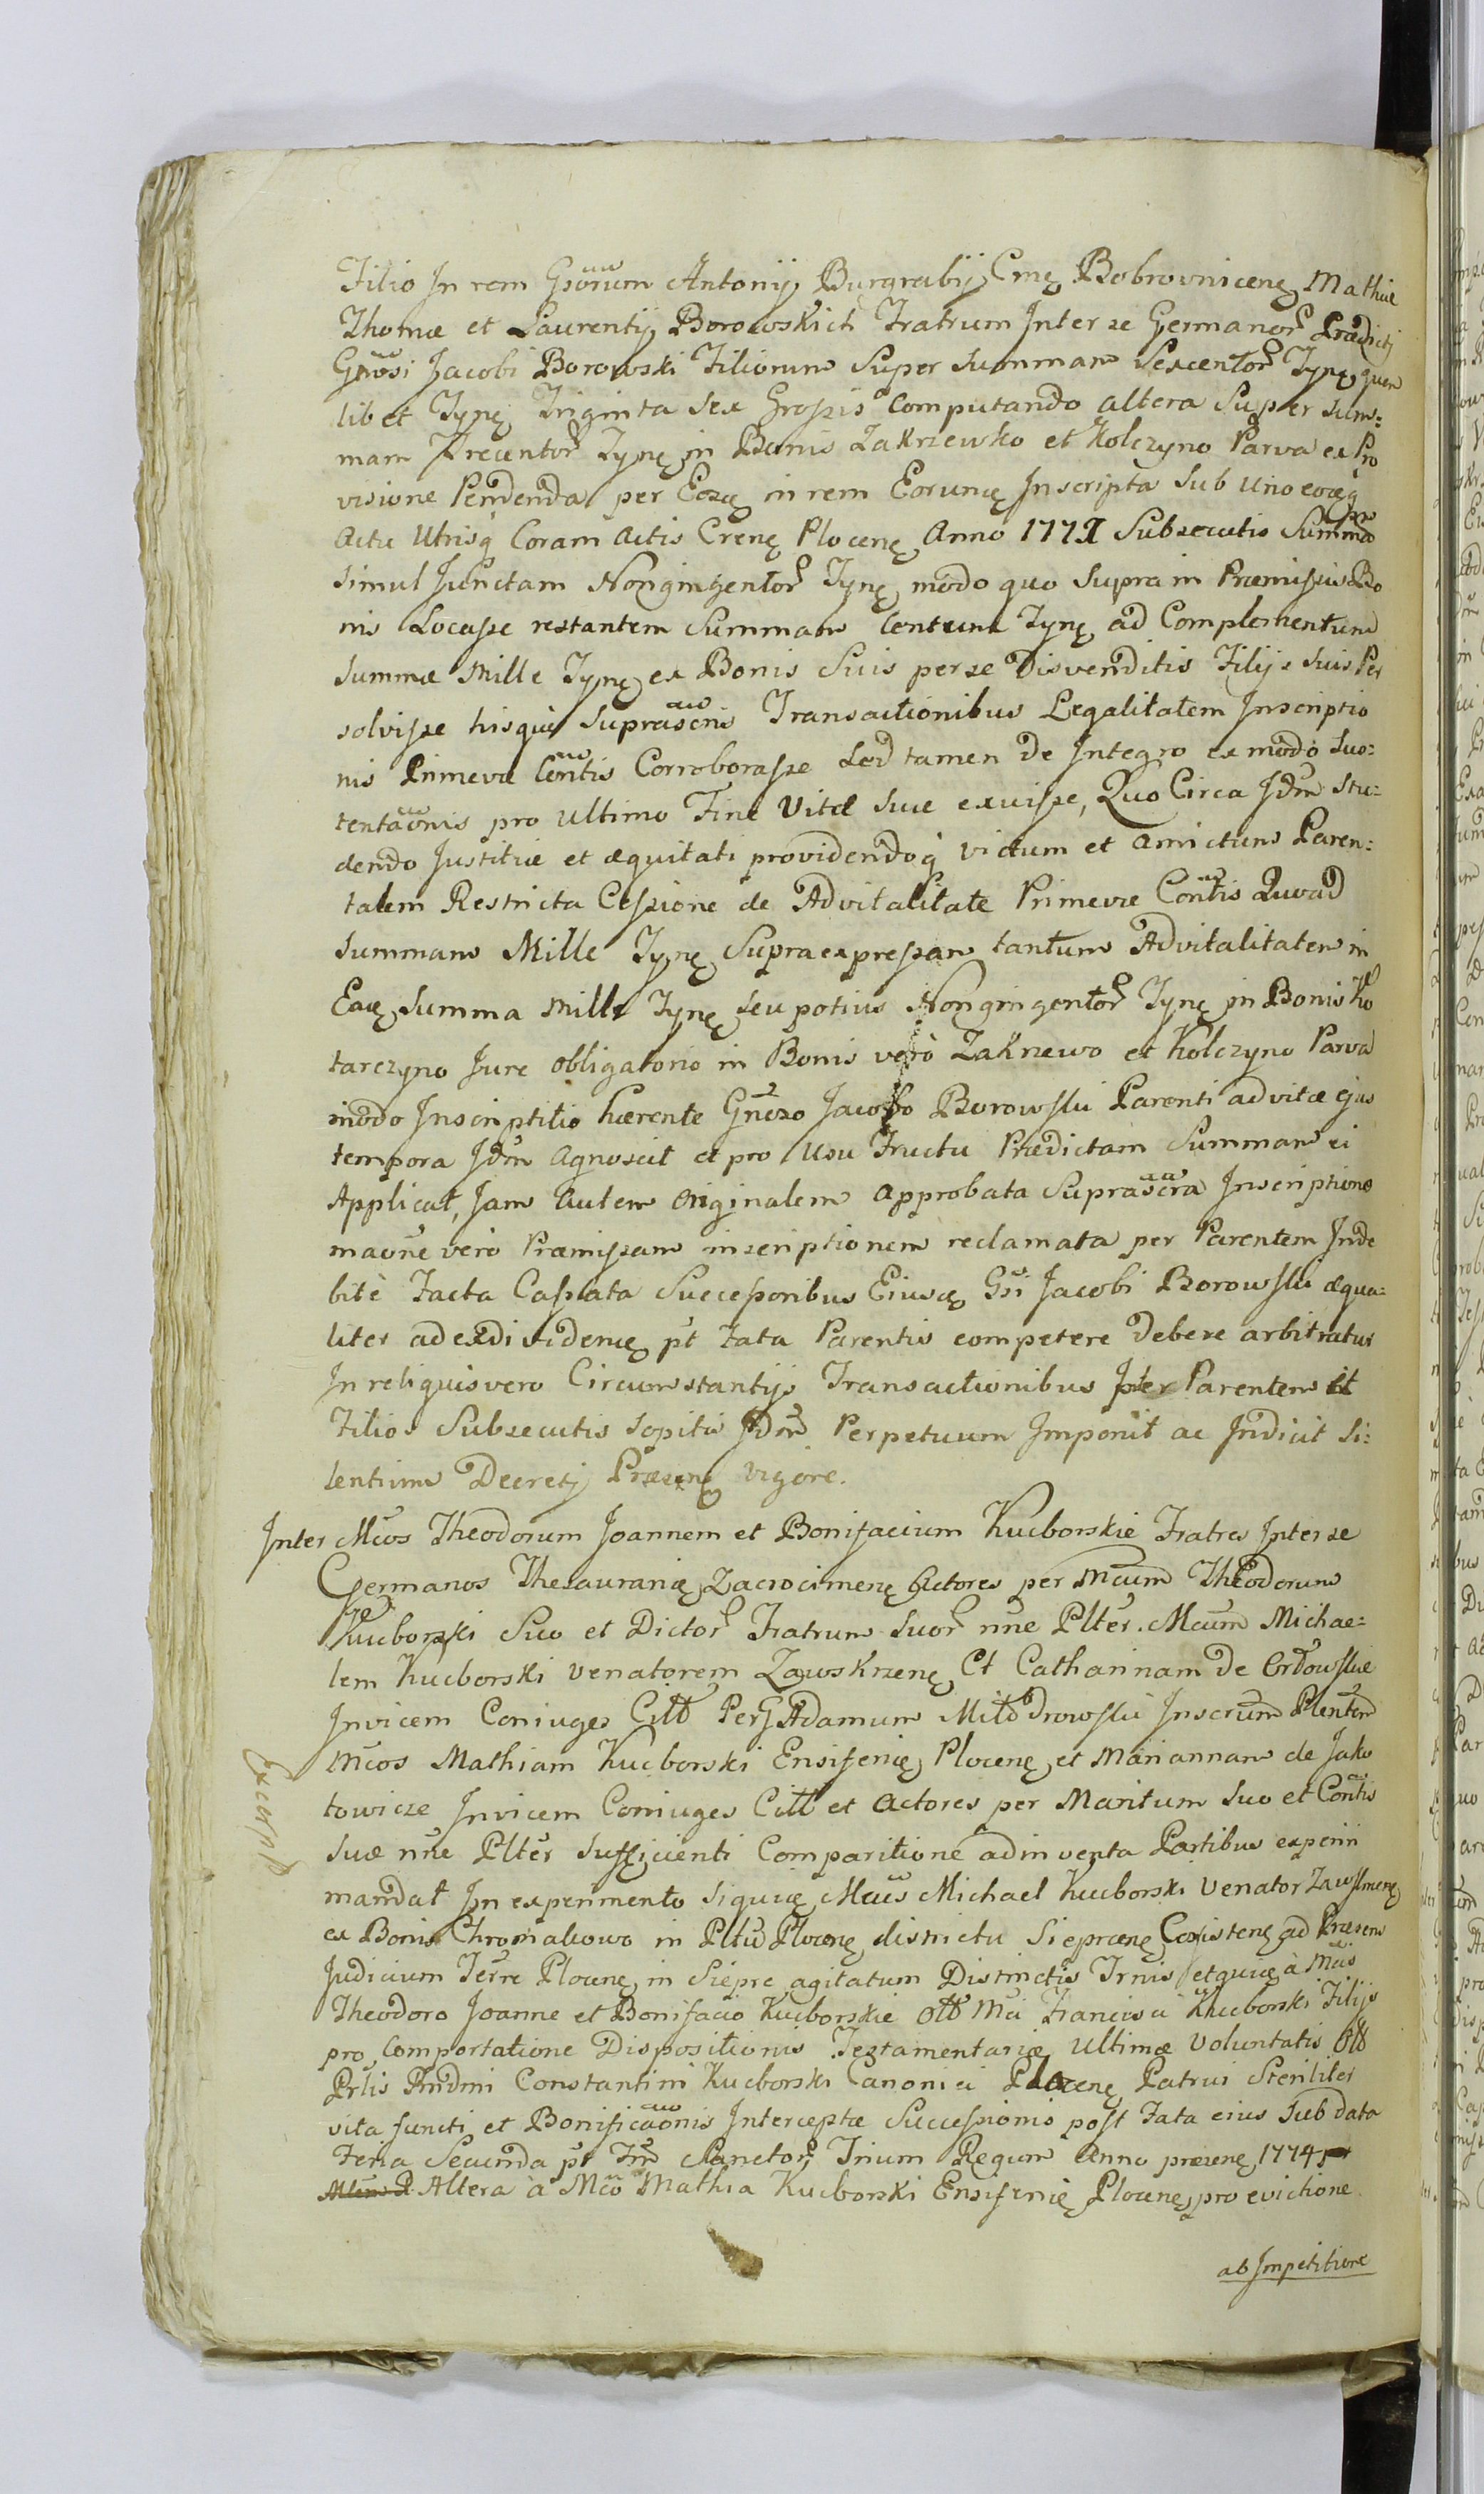 Filio In rem Gsorum Antonij Burgrabij Cmę Bobrovnicenę Mathiæ
Thomæ et Laurentij Borowskich Fratrum Inter se Germanor Prædicti
Gnosi Jacobi Borowski Filiorum Super Summam Sexcentor Tynę quem
libet Tynę Triginta sex Grossis Computando altera Super Sum=
mam Trecentor Tynę in Bonis Zakrzewko et Kolczyno Parva ex Pro
visione Pendenda per Eosdę in rem Eorundę Inscripta Sub Uno eodeq
Actu Utrisq Coram Actis Crenę Plocenę Anno 1771 Subsecutis Summa
simul Junctam Nongingentor Tynę modo quo supra in Præmissis Bo
nis Locasse restantem Summam Centum Tynę ad Complementum
Summæ Mille Tynę ex Bonis Suis per se Disvenditis Filijs suis Per
solvisse hisque Suprascris Transactionibus Legalitatem Inscriptio
nis Primevæ Contis Corroborasse Sed tamen De Integro ex modo Sus=
tentaonis pro ultimo Fine Vitæ suæ exuisse, Quo Circa Jdm Stu=
dendo Justitiæ et æquitati providendoq victum et amictum Paren=
talem Restricta Cessione de Advitalitate Primevæ Contis Quoad
Summam Mille Tynę Supraexpressam tantum Advitalitatem in
Eadę Summa Mille Tynę seu potius Nongingentor Tynę in Bonis Ko
tarczyno Jure obligatorio in Bonis verò Zakrzewo et Kolczyno Parva
modo Inscriptitio hærente Gnoso Jacobo Borowski Parenti ad vitæ ejus
tempora Jdm Agnoscit et pro Usu Fructu Prædictam Summam ei
Applicat, Jam autem originalem approbata Suprascra Inscriptione
maone vero Præmissam inscriptionem reclamata per Parentem Inde
bitè Facta Cassata Successoribus Eiusdę Gsi Jacobi Borowski æqua=
liter ad exdividendę pt Fata Parentis competere Debere arbitratur
In reliquis vero Circumstantijs Transactionibus Inter Parentem et
Filios Subsecutis sopitis Jdm Perpetuum Imponit ac Indicit Si=
lentium Decreti Præsenę vigore.
Inter Mcos Theodorum Joannem et Bonifacium Kucborskie Fratres Inter se
Germanos Thesauranię Zacrocimenę Actores per Mcum Theodorum
Kucborski Suo et Dictor Fratrum Suor nne Plter. Mcum Michae=
lem Kucborski Venatorem Zawskrzenę Et Catharinam De Ordowskie
Invicem Coniuges Citt Per G Adamum Milodrowski Inscrum Plentem
Mcos Mathiam Kucborski Ensiferię Plocenę et Mariannam de Jako
towicze Invicem Coniuges Citt et Actores per Maritum Suo et Contis
suæ nne Plter Sufficienti Comparitione adinventa Partibus experiri
mandat In experimento siquidę Mcus Michael Kucborski Venator Zawskrzenę
ex Bonis Chromakowo in Pltu Plocenę districtu Sieprcenę Consistenę ad Præsens
Judicium Terre Plocenę in Siepre agitatum Distinctis Trnis et quidę à Mcis
Theodoro Joanne et Bonifacio Kucborskie Olb Mci Francisci Kucborski Filijs
pro Comportatione Dispositionis Testamentariæ Ultimæ Voluntatis Olb
Prlis Andmi Constantini Kucborski Canonici Plocenę Patrui Steriliter
vita functi et Bonificaonis Interceptæ Successionis post Fata eius Sub data
Feria Secunda pt Fm Sanctor Trium Regum Anno præsenę 1774
Altera à Mco Mathia Kucborski Ensiferię Plocenę pro evictione
ab Impetitione